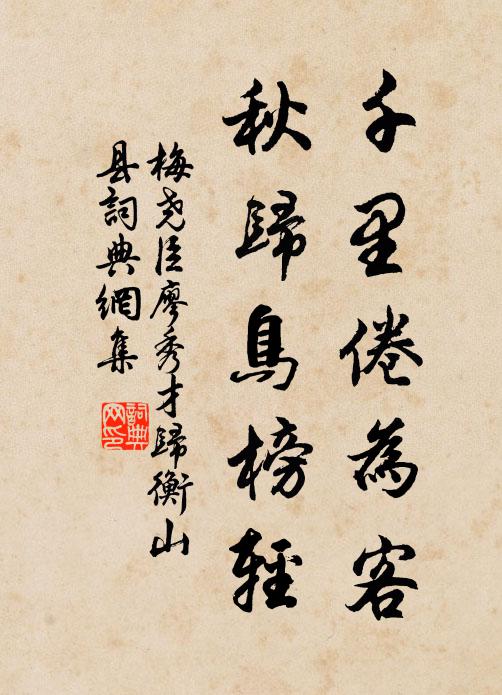 千里倦為客
秋歸鳥榜輕
梅尧臣廖秀才歸衡山
县詞典網集
詞典网印